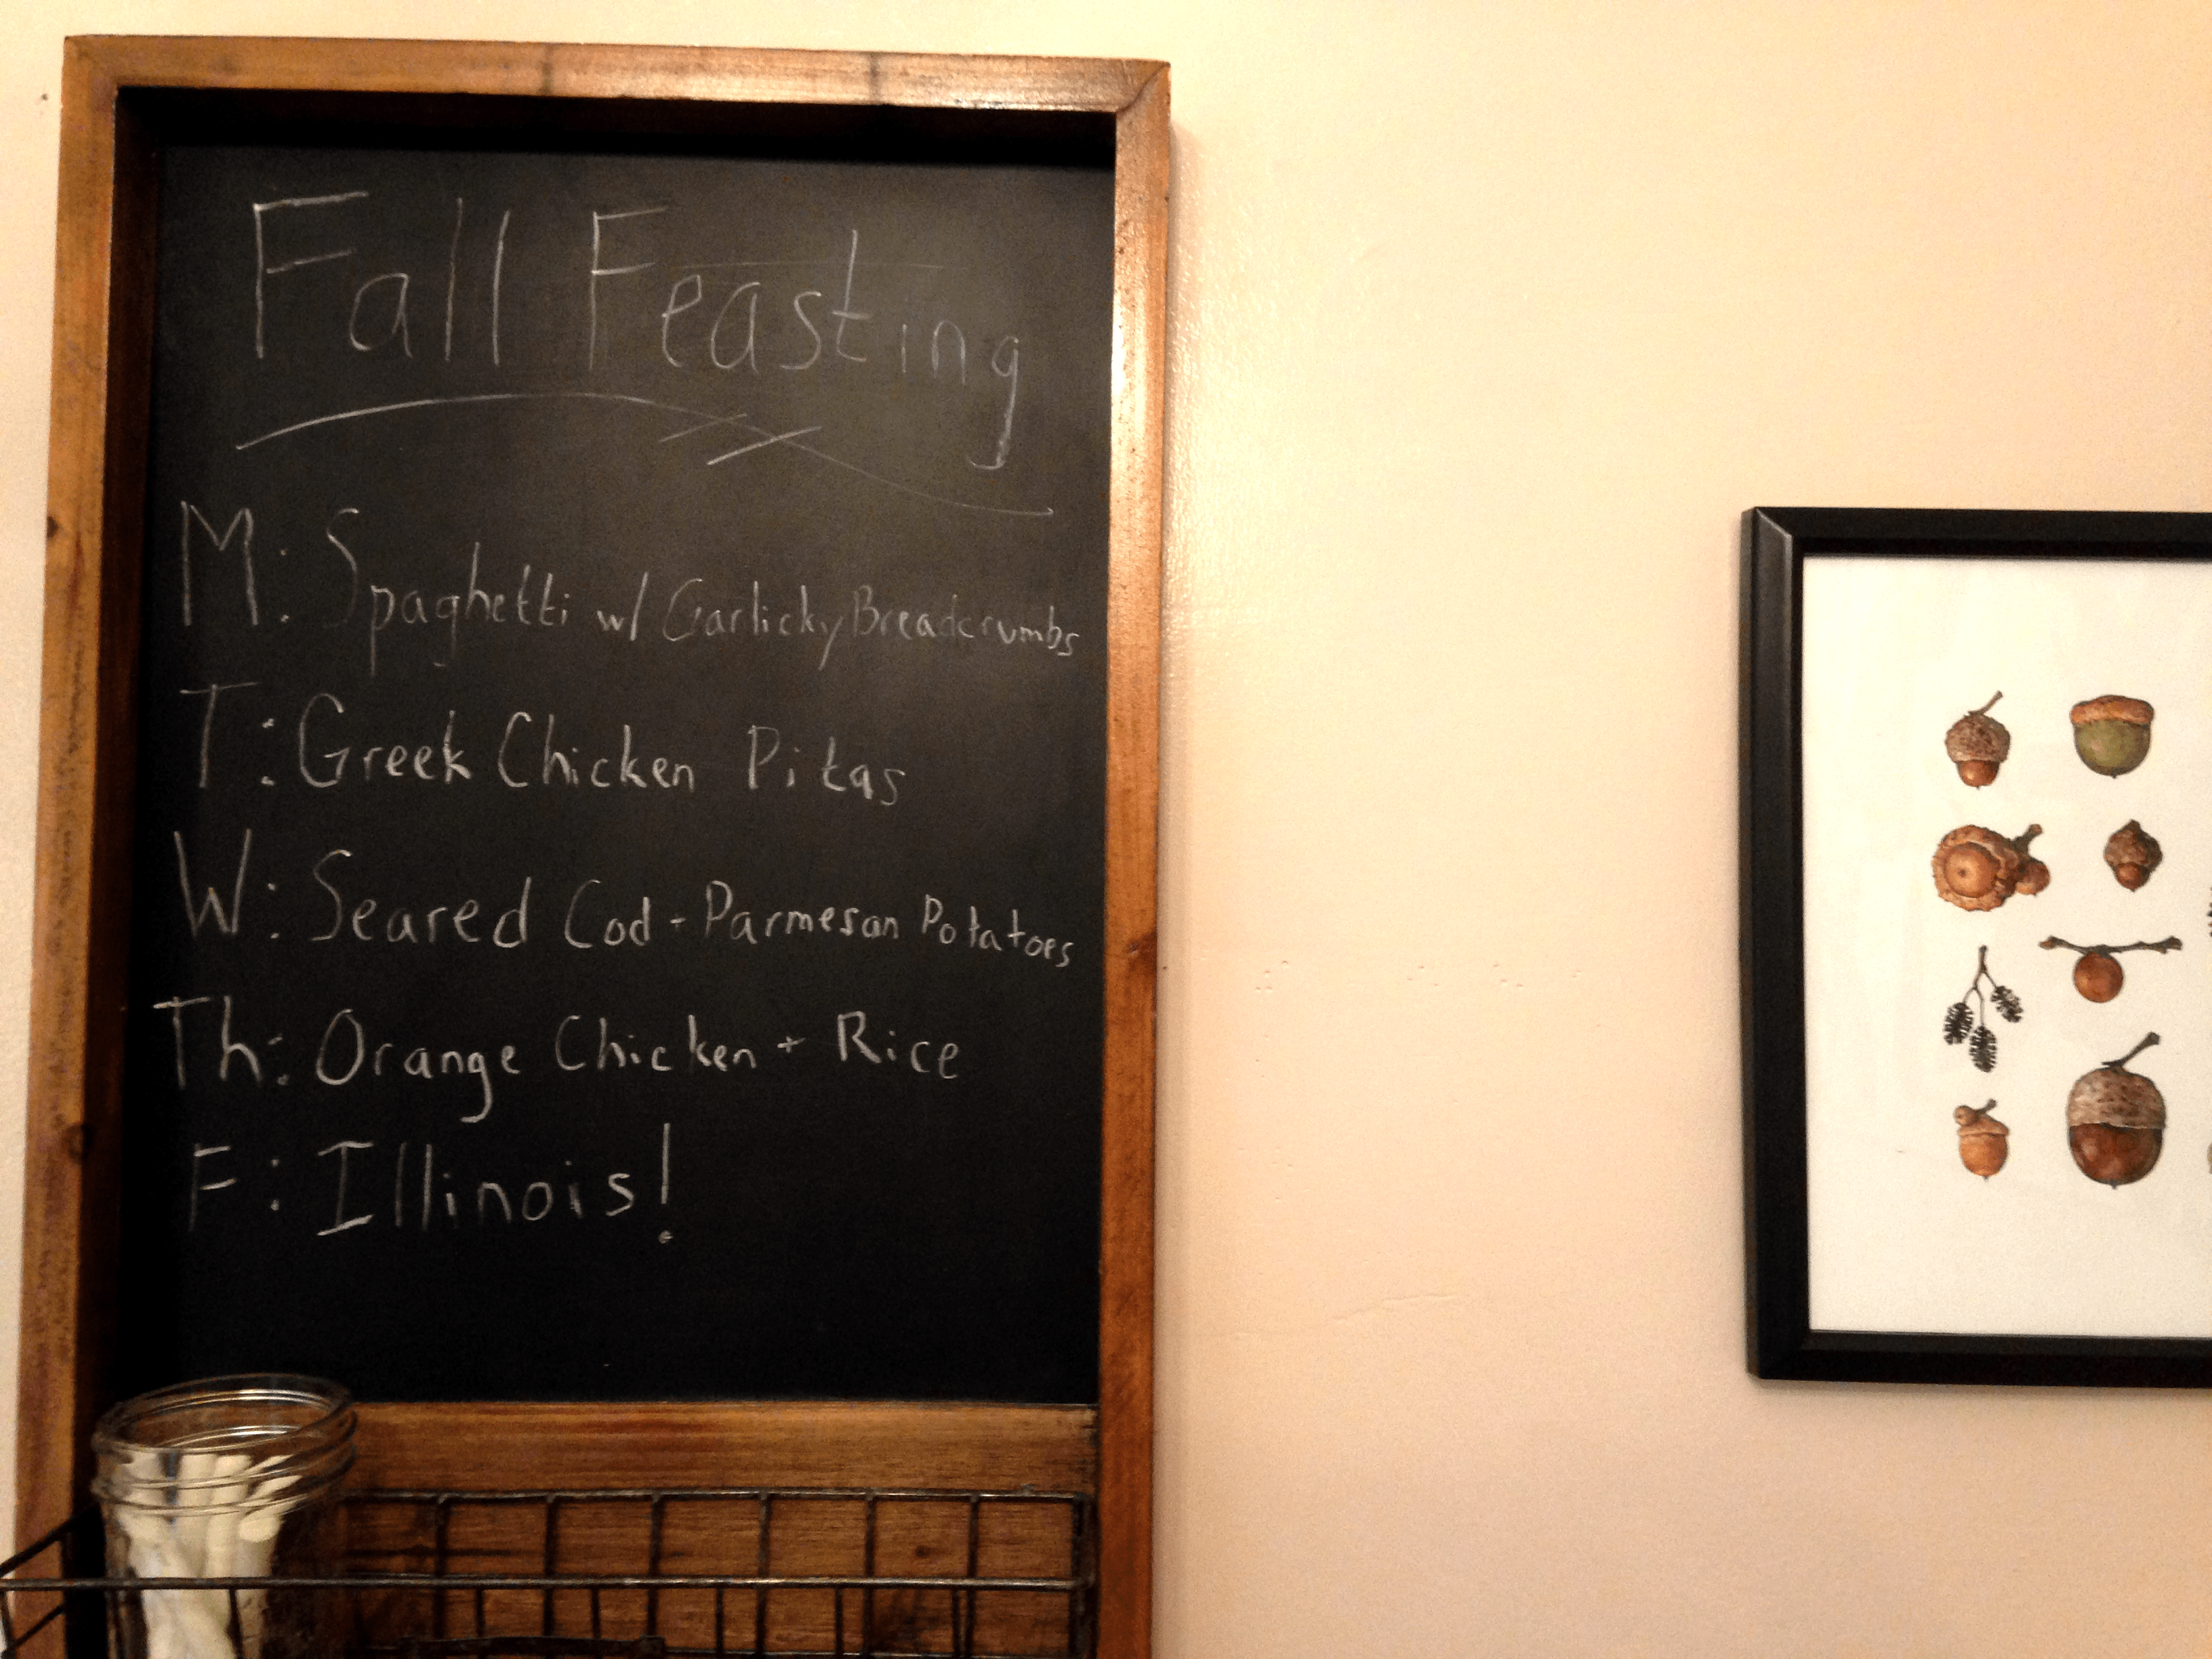 Fall Feasting
M: Spaghetti w/ Garlicky Breadcrumbs
T: Greek Chicken Pitas
W: Seared Cod - Parmesan Potatoes
Th: Orange Chicken + Rice
F: Illinois!